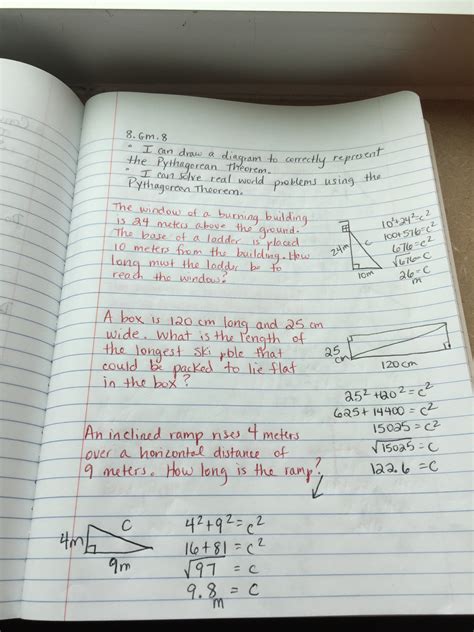 8.Gm.8
• I can draw a diagram to correctly represent
the Pythagorean Theorem.
• I can solve real world problems using the
Pythagorean Theorem.
The window of a burning building
is 24 meters above the ground.
The base of a ladder is placed
10 meters from the building. How
long must the ladder be to
reach the window?
24m
c
10m
10²+24²=c²
100+576=c²
676=c²
√676=c
26=c
m
A box is 120 cm long and 25 cm
wide. What is the length of
the longest ski pole that
could be packed to lie flat
in the box?
25
cm
120cm
25²+120²=c²
625+14400=c²
15025=c²
√15025=c
122.6=c
An inclined ramp rises 4 meters
over a horizontal distance of
9 meters. How long is the ramp?
4m
c
9m
4²+9²=c²
16+81=c²
√97=c
9.8=c
m